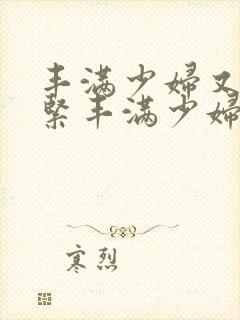 丰满少妇又
紧丰满少妇
寒烈